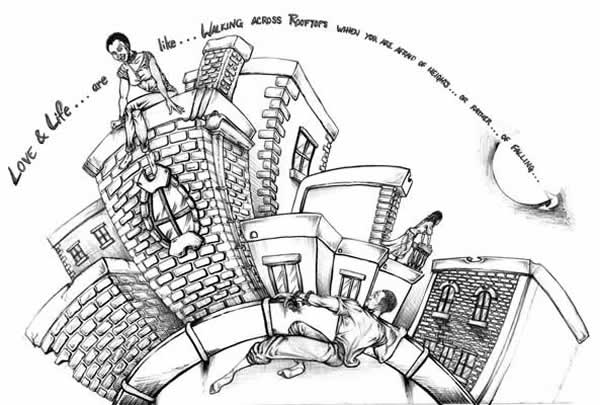 Love & Life... are like... Walking across Rooftops when you are afraid of heights... or rather... of falling...